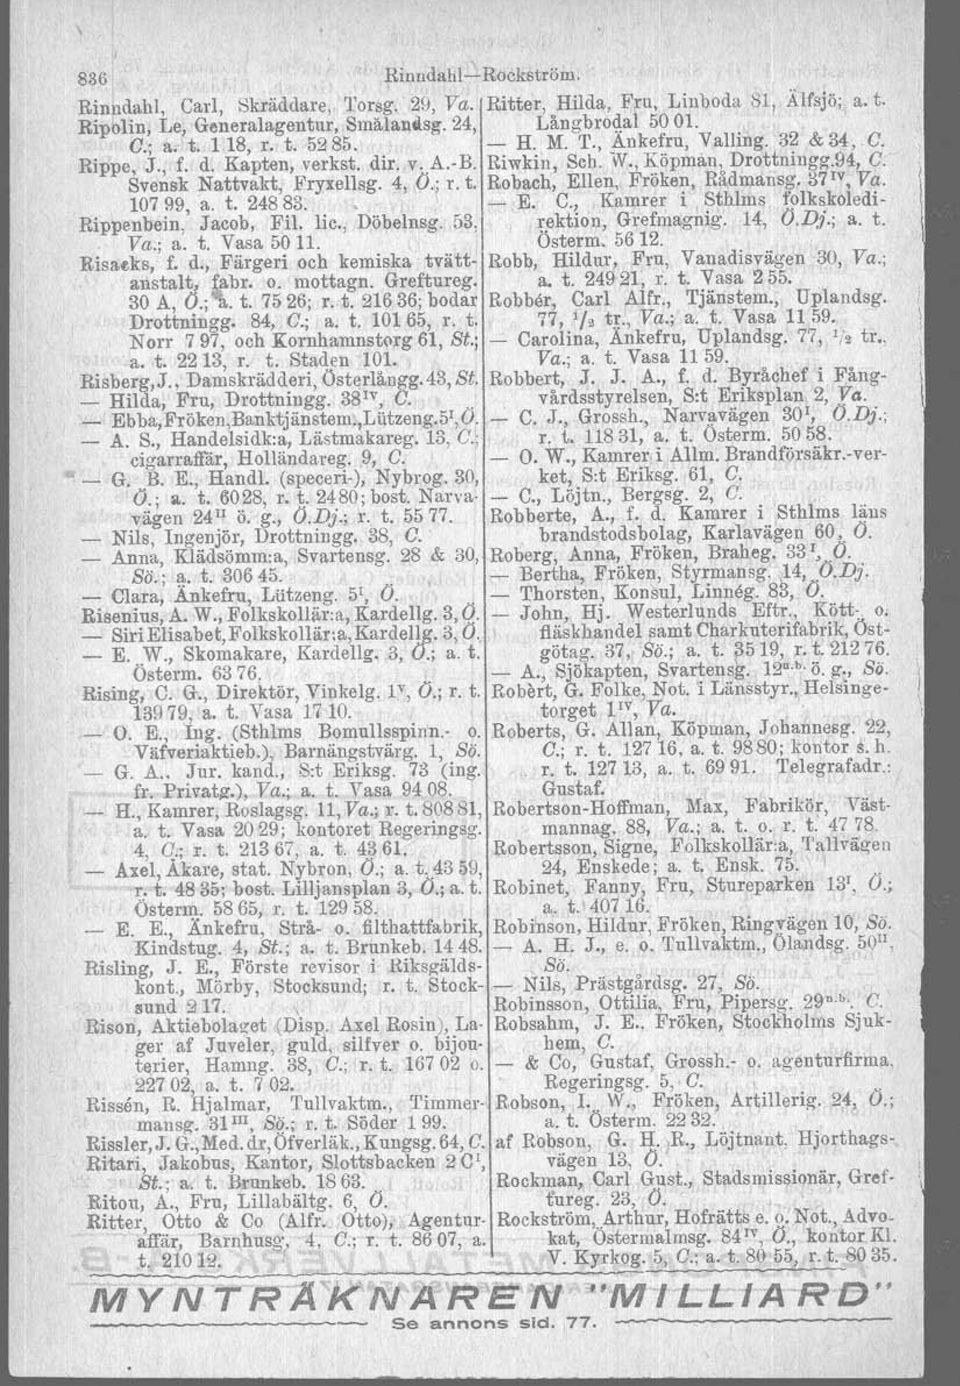 836
Rinndahl—Rockström.
Rinndahl, Carl, Skräddare, Torsg. 29, Va.
Ripolin, Le, Generalagentur, Smålandsg. 24,
C.; a. t. 1 18, r. t. 52 85.
Rippe, J., f. d. Kapten, verkst. dir. v. A.-B.
Svensk Nattvakt, Fryxellsg. 4, Ö.; r. t.
107 99, a. t. 248 83.
Rippenbein, Jacob, Fil. lic., Döbelnsg. 53,
Va.; a. t. Vasa 50 11.
Risaeks, f. d., Färgeri och kemiska tvätt-
anstalt, fabr. o. mottagn. Greftureg.
30 A, Ö.; a. t. 75 26; r. t. 216 36; bodar
Drottningg. 84, C.; a. t. 101 65, r. t.
Norr 7 97, och Kornhamnstorg 61, St.;
a. t. 22 13, r. t. Staden 101.
Risberg, J., Damskrädderi, Österlångg. 43, St.
— Hilda, Fru, Drottningg. 38IV, C.
— Ebba, Fröken, Banktjänstem., Lützeng. 5I, Ö.
— A. S., Handelsidk:a, Lästmakareg. 13, C.;
cigarraffär, Holländareg. 9, C.
— G. B. E., Handl. (speceri-), Nybrog. 30,
Ö.; a. t. 60 28, r. t. 24 80; bost. Narva-
vägen 24II ö. g., Ö.Dj.; r. t. 55 77.
— Nils, Ingenjör, Drottningg. 38, C.
— Anna, Klädsömm:a, Svartensg. 28 & 30,
Sö.; a. t. 306 45.
— Clara, Änkefru, Lützeng. 5I, Ö.
Risenius, A. W., Folkskollär:a, Kardellg. 3, Ö.
— Siri Elisabet, Folkskollär:a, Kardellg. 3, Ö.
— E. W., Skomakare, Kardellg. 3, Ö.; a. t.
Österm. 63 76.
Rising, C. G., Direktör, Vinkelg. 1V, Ö.; r. t.
139 79, a. t. Vasa 17 10.
— O. E., Ing. (Sthlms Bomullsspinn.- o.
Väfveriaktieb.), Barnängstvärg. 1, Sö.
— G. A., Jur. kand., S:t Eriksg. 73 (ing.
fr. Privatg.), Va.; a. t. Vasa 94 08.
— H., Kamrer, Roslagsg. 11, Va.; r. t. 808 81,
a. t. Vasa 20 29; kontoret Regeringsg.
4, C.; r. t. 213 67, a. t. 43 61.
— Axel, Åkare, stat. Nybron, Ö.; a. t. 43 59,
r. t. 48 35; bost. Lilljansplan 3, Ö.; a. t.
Österm. 58 65, r. t. 129 58.
— E. E., Änkefru, Strå- o. filthattfabrik,
Kindstug. 4, St.; a. t. Brunkeb. 14 48.
Risling, J. E., Förste revisor i Riksgälds-
kont., Mörby, Stocksund; r. t. Stock-
sund 2 17.
Rison, Aktiebolaget (Disp. Axel Rosin), La-
ger af Juveler, guld, silfver o. bijou-
terier, Hamng. 38, C.; r. t. 167 02 o.
227 02, a. t. 7 02.
Rissén, R. Hjalmar, Tullvaktm., Timmer-
mansg. 31III, Sö.; r. t. Söder 1 99.
Rissler, J. G., Med. dr, Öfverläk., Kungsg. 64, C.
Ritari, Jakobus, Kantor, Slottsbacken 2 CI,
St.; a. t. Brunkeb. 18 63.
Ritou, A., Fru, Lillabältg. 6, Ö.
Ritter, Otto & Co (Alfr. Otto), Agentur-
affär, Barnhusg. 4, C.; r. t. 86 07, a.
t. 210 12.
Ritter, Hilda, Fru, Linboda 81, Älfsjö; a. t.
Långbrodal 50 01.
— H. M. T., Änkefru, Valling. 32 & 34, C.
Riwkin, Sch. W., Köpman, Drottningg. 94, C.
Robach, Ellen, Fröken, Rådmansg. 37IV, Va.
— E. C., Kamrer i Sthlms folkskoledi-
rektion, Grefmagnig. 14, Ö.Dj.; a. t.
Österm. 56 12.
Robb, Hildur, Fru, Vanadisvägen 30, Va.;
a. t. 249 21, r. t. Vasa 2 55.
Robbér, Carl Alfr., Tjänstem., Uplandsg.
77, 1/2 tr., Va.; a. t. Vasa 11 59.
— Carolina, Änkefru, Uplandsg. 77, 1/2 tr.,
Va.; a. t. Vasa 11 59.
Robbert, J. J. A., f. d. Byråchef i Fång-
vårdsstyrelsen, S:t Eriksplan 2, Va.
— C. J., Grossh., Narvavägen 30I, Ö.Dj.;
r. t. 118 31, a. t. Österm. 50 58.
— O. W., Kamrer i Allm. Brandförsäkr.-ver-
ket, S:t Eriksg. 61, C.
— C., Löjtn., Bergsg. 2, C.
Robberte, A., f. d. Kamrer i Sthlms läns
brandstodsbolag, Karlavägen 60, Ö.
Roberg, Anna, Fröken, Braheg. 33I, Ö.
— Bertha, Fröken, Styrmansg. 14, Ö.Dj.
— Thorsten, Konsul, Linnég. 83, Ö.
— John, Hj. Westerlunds Eftr., Kött- o.
fläskhandel samt Charkuterifabrik, Öst-
götag. 37, Sö.; a. t. 35 19, r. t. 212 76.
— A., Sjökapten, Svartensg. 12n.b. ö. g., Sö.
Robèrt, G. Folke, Not. i Länsstyr., Helsinge-
torget 1IV, Va.
Roberts, G. Allan, Köpman, Johannesg. 22,
C.; r. t. 127 16, a. t. 98 80; kontor s. h.
r. t. 127 13, a. t. 69 91. Telegrafadr.:
Gustaf.
Robertson-Hoffman, Max, Fabrikör, Väst-
mannag. 88, Va.; a. t. o. r. t. 47 78.
Robertsson, Signe, Folkskollär:a, Tallvägen
24, Enskede; a. t. Ensk. 75.
Robinet, Fanny, Fru, Stureparken 13I, Ö.;
a. t. 407 16.
Robinson, Hildur, Fröken, Ringvägen 10, Sö.
— A. H. J., e. o. Tullvaktm., Ölandsg. 50II,
Sö.
— Nils, Prästgårdsg. 27, Sö.
Robinsson, Ottilia, Fru, Pipersg. 29n.b., C.
Robsahm, J. E., Fröken, Stockholms Sjuk-
hem, C.
— & Co, Gustaf, Grossh.- o. agenturfirma,
Regeringsg. 5, C.
Robson, I. W., Fröken, Artillerig. 24, Ö.;
a. t. Österm. 22 32.
af Robson, G. H. R., Löjtnant, Hjorthags-
vägen 13, Ö.
Rockman, Carl Gust., Stadsmissionär, Gref-
tureg. 23, Ö.
Rockström, Arthur, Hofrätts e. o. Not., Advo-
kat, Östermalmsg. 84IV, Ö., kontor Kl.
V. Kyrkog. 5, C.; a. t. 80 55, r. t. 80 35.
MYNTRÄKNAREN "MILLIARD"
Se annons sid. 77.